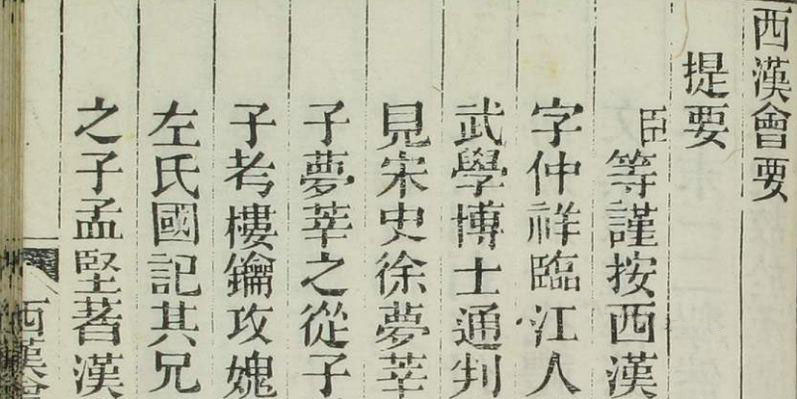 西漢會要
提要
臣等謹按西漢
字仲祥臨江人
武學博士通判
見宋史徐夢莘
子夢莘之從子
子考樓鑰攻媿
左氏國記其兄
之子孟堅著漢
西漢會